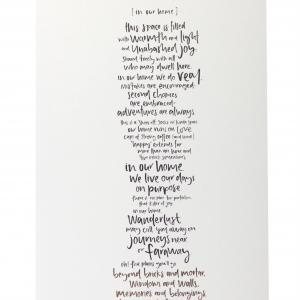 [in our home]
this space is filled
with warmth and light
and unabashed joy.
shared freely with all
who may dwell here.
in our home we do real.
mistakes are encouraged.
second chances
are embraced.
adventures are always.
this is a shoes off, socks or kinda space.
our home runs on love.
cups of strong coffee (and wine)
'happy' extends for
more than an hour and
in our home
we live our days
on purpose
there is no plan for perfection,
that thief of joy.
in our home,
Wanderlust
may call you away on
journeys near
or faraway
oh! the places you'll go
beyond bricks and mortar,
windows and walls,
memories and belongings